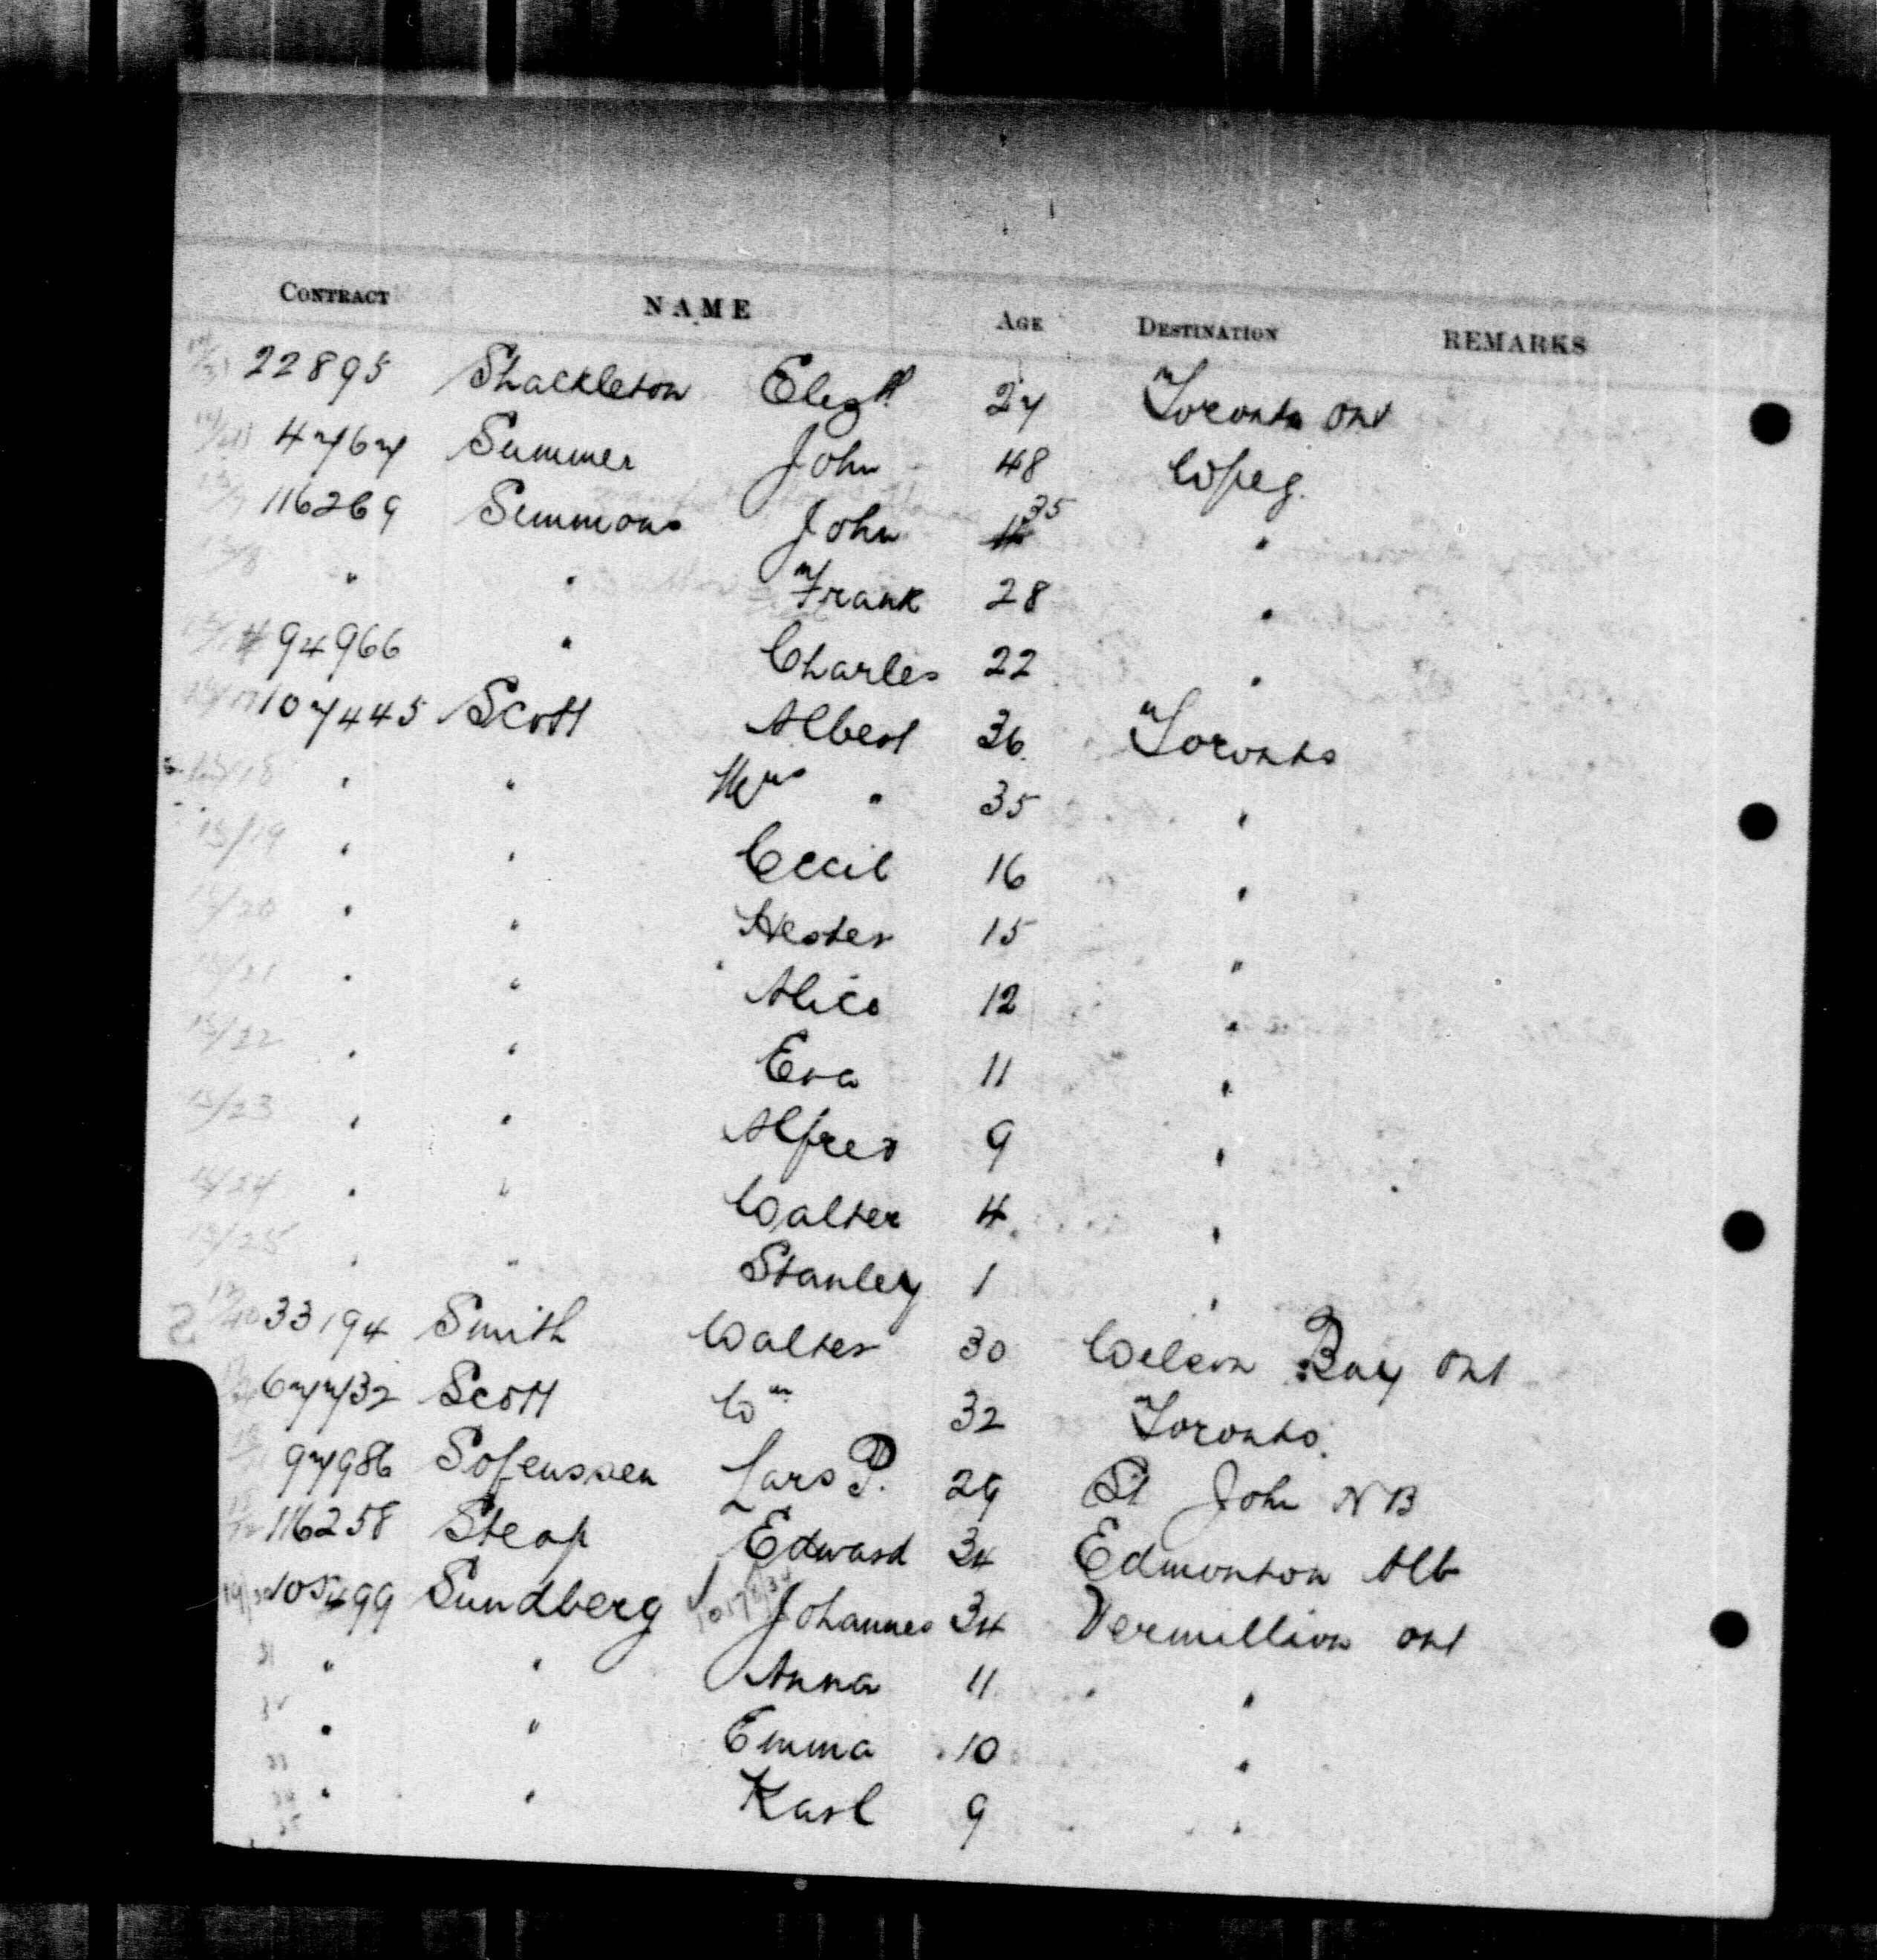 CONTRACT NAME AGE DESTINATION REMARKS
22895 Shackleton Elizth 27 Toronto Ont
4767 Summer John 48 Wpeg.
116269 Simmons John 35 "
" " Frank 28 "
94966 " Charles 22 "
107445 Scott Albert 36 Toronto
15/18 " " Mrs " 35 "
15/19 " " Cecil 16 "
15/20 " " Hester 15 "
15/21 " " Alice 12 "
15/22 " " Eva 11 "
15/23 " " Alfred 9 "
15/24 " " Walter 4 "
15/25 " " Stanley 1 "
33194 Smith Walter 30 Bay Ont
677732 Scott Wm 32 Toronto.
97986 Lars P. 29 St John NB
116258 Steap Edward 34 Edmonton Alb
105499 Sundberg Johannes 34 Vermillion Ont
" " Anna 11 "
" " Emma 10 "
" " Karl 9 "